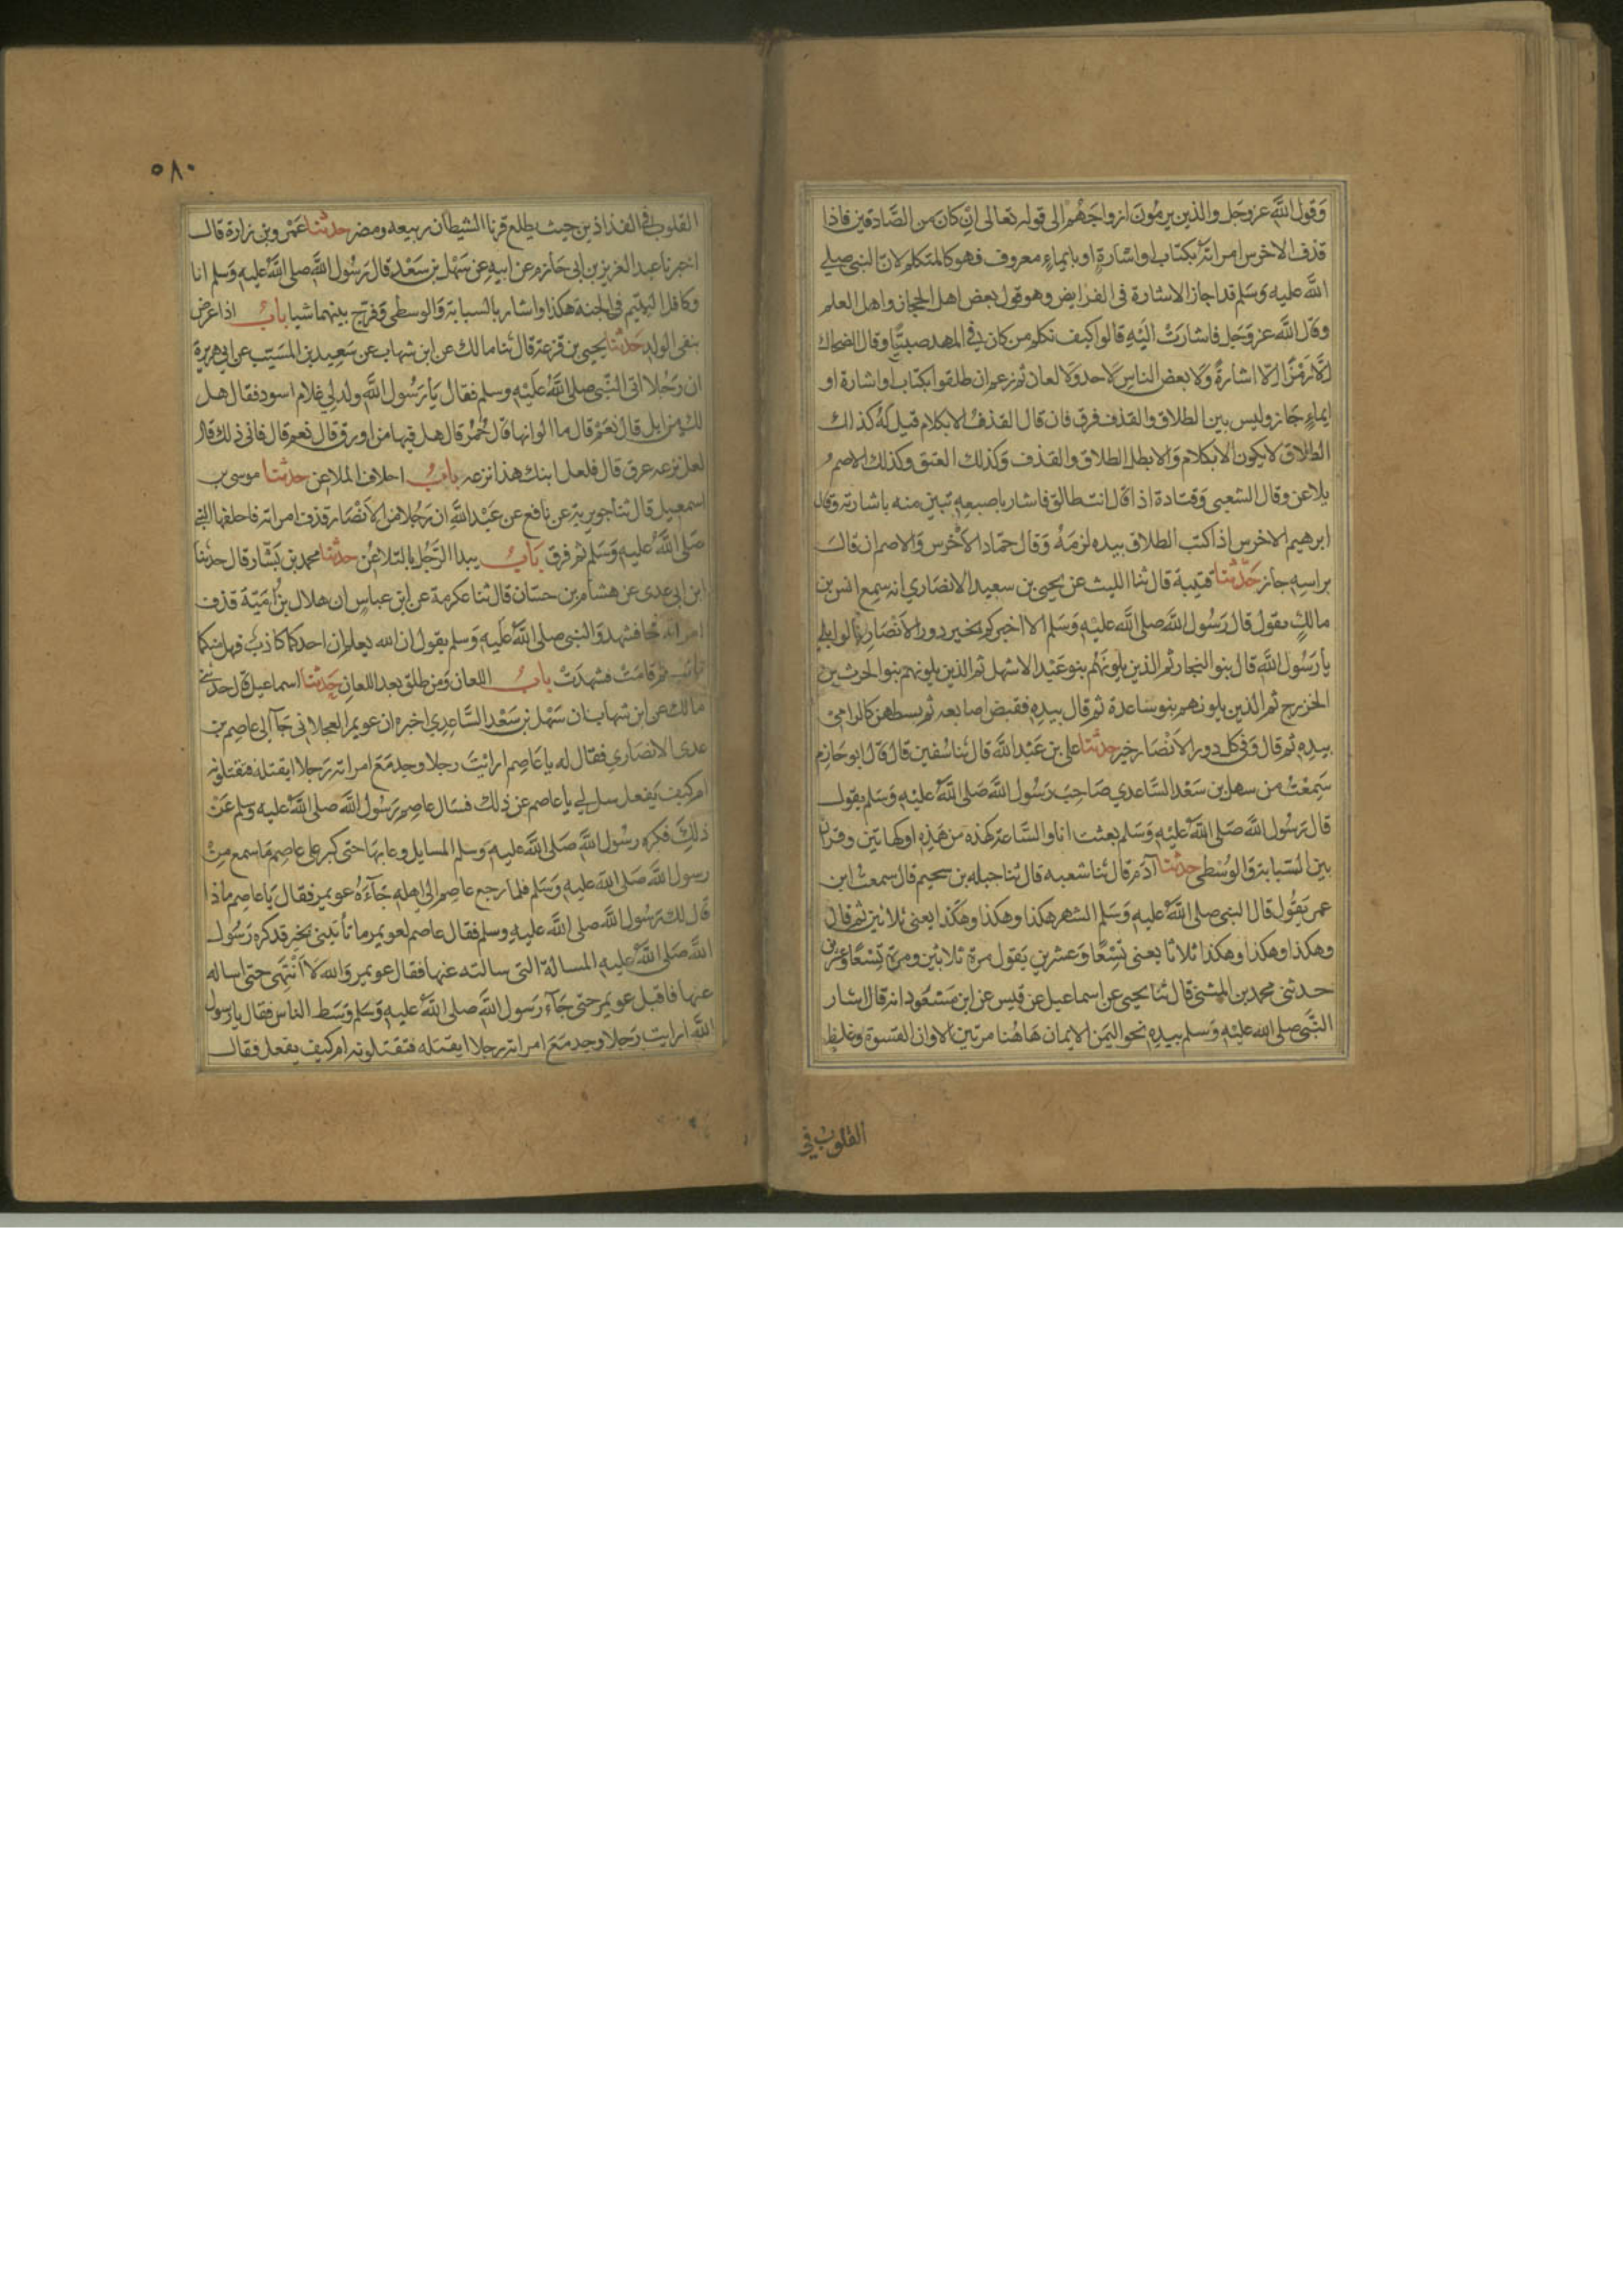 وَقول اللَّهِ عزوجَل والذين يرمُونَ ازواجَهُم الى قوله تعالى ان كان من الصَّادقين فاذا
قذف الاخرس امراتَهُ بكتاب او اشارةٍ او بايماءٍ معروف فهو كالمتكلم لانّ النبى صلى
اللَّه عليه وسَلم قد اجاز الاشارة فى الفرايض وهو قول بعض اهل الحجاز واهل العلم
وقال اللَّهُ عزوجَل فاشارَتْ الَيْهِ قالوا كيف نكلم من كان في المهد صبيّا وقال الضحاك
اِلَّا رَمْزًا اِلّا اشارةً وَقال بعض الناس لا حد وَلا لعان ثم زعم ان طلقوا بكتاب او اشارة او
ايماءٍ جَاز وليس بين الطلاق والقذف فرق فان قال القذفُ لا بكلام قيل لَهُ كذلك
الطلاق لا يكون الا بكلام وَالا بطل الطلاق والقذف وَكذلك العتق وكذلك الاصم
يلاعن وقال الشعبى وَقتادة اذا قال انت طالق فاشار باصبعِهِ تبين منه باشارته وقال
ابرهيم الاخرس اذا كتب الطلاق بيده لزمَهُ وَقال حمّاد الاَخْرس وَالاصم ان قالَ
براسِهِ جاز حَدَّثنا قتيبة قال ثنا الليث عن يحيى بن سعيد الانصَاري انه سمع انس بن
مالكٍ يقول قال رَسُول اللَّه صلى اللَّه عليهِ وَسَلم الا اخبركم بخير دور الاَنْصَارِ قالوا بلى
يَا رَسُول اللَّهِ قال بنو النجار ثم الذين يلونَهُم بنو عَبْد الاشهل ثم الذين يلونهم بنو الحرث بن
الخزرج ثم الذين يلونهم بنو ساعدة ثم قال بيدِهِ فقبض اصابعه ثم بسطهن كالرامى
بيدِهِ ثم قال وَفى كل دور الاَنْصَار خير حدثنا على بن عَبْد اللَّه قال ثنا سُفين قال قال ابو حَازم
سَمِعْتُ من سهل بن سَعْد السَّاعدي صَاحِبَ رَسُول اللَّه صَلى اللَّهُ عليْهِ وَسَلم يقول
قال رَسُول اللَّه صَلى اللَّه عليْهِ وَسَلم بعثت انا وَالسَّاعة كهذه من هَذِهِ او كهاتين وقرن
بين السّبابة وَالوُسْطى حدثنا آدَم قال ثنا شعبه قال ثنا جبله بن سحيم قال سمعت ابن
عمر يَقُول قال النبى صلى اللَّهُ عليه وَسَلم الشهر هكذا وهكذا وهكَذا يعنى ثلاثين ثم قال
وهكذا وهكذا وهكذا ثلاثا يعنى تِسْعًا وَعشرين يَقول مرة ثلاثين ومرة تِسْعًا وعشرين
حدثنى محمد بن المثنى قال ثنا يحيى عن اسماعيل عن قيس عن ابن مَسْعُود انه قال اشار
النَّبى صلى الله عليْهِ وَسلم بيدِهِ نحو اليَمن الايمان هَاهُنا مرتين الا وان القسوة وغلظ
القلوبُ في
٥٨٠
القلوب في الفذاذين حيث يطلع قرنا الشيطان ربيعه ومضر حدثنا عَمْرو بن زرارة قال
اخبرنا عبد العزيز بن ابى حَازم عن ابيهِ عن سَهْل بن سَعْد قال رَسُول اللَّهِ صلى اللَّهُ عليه وسَلم انا
وكافل اليتيم فى الجنه هكذا واشار بالسبابة وَالوسطى وَفرّج بينهما شيا بابٌ اذا عرض
بنفى الولدِ حَدثنا يحيى بن قزعة قال ثنا مالك عن ابن شهاب عن سَعِيد بن المسَيّب عن ابى هريرة
ان رَجُلا اتى النَّبى صلى اللَّهُ عَلَيْهِ وسلم فقال يَا رَسُول اللَّهِ ولد لِي غلام اسود فقال هل
لكَ من ابل قال نَعَمْ قال ما الوانها قال حُمْرٌ قال هل فيها من اورق قال نعم قال فانى ذلك قال
لعل نزعه عرق قال فلعل ابنك هذا نزعه بابُ احلاف الملاعن حدثنا موسى بن
اسمعيل قال ثنا جويرية عن نافع عن عَبْد اللَّهِ ان رَجُلا من الاَنْصَار قذف امراته فاحلفها النبى
صَلى اللَّهُ عليه وَسَلم ثم فرق بَابُ يبدا الرَّجُل بالتلاعُن حدثنا محمد بن بَشّار قال حدثنا
ابن ابى عدى عن هشام بن حسّان قال ثنا عكرمة عن ابن عباسٍ ان هلال بن اُمَيّة قذف
امراته فجا فشهد وَالنبى صلى اللَّهُ عَليه وَسَلم يقول ان الله يعلم ان احدكما كاذبٌ فهل منكما
تائب ثم قامَتْ فشهدَتْ بابُ اللعان وَمن طلق بعد اللعان حَدثنا اسماعيل قال حدثنى
مالك عن ابن شهاب ان سَهْل بن سَعْد السَّاعِدي اخبره ان عويمرا العجلانى جَآ الى عاصِم بن
عدى الانصَاري فقال له يا عَاصِم ارايْتَ رجلا وجد مَعَ امراته رَجلا ايقتله فتقتلونه
ام كيف يَفعل سل لِي يا عاصم عن ذلك فسَال عاصِم رَسُول اللَّه صلى اللَّهُ عليه وسلم عَنْ
ذلِكَ فكره رسُول اللَّهِ صَلى اللَّه عليهِ وَسلم المسايل وعابهَا حتى كبر على عاصِمٍ مَا سمع مِنْ
رسول اللَّه صَلى اللَّه عليهِ وَسَلم فلما رجع عاصِم الى اهلِهِ جَآءَهُ عويمر فقال يَا عاصِم ماذا
قال لك رَسُول اللَّه صلى اللَّه عليهِ وسلم فقال عاصم لعويمر ما تأتينى بخير قد كره رَسُول
اللَّه صَلى اللَّهُ عليه المسالة التى سالته عنها فقال عويمر وَالله لَا اَنْتَهى حتى اساله
عنها فاقبل عويمر حتى جَآءَ رَسول اللَّهِ صلى اللَّهُ عليهِ وَسَلم وَسَط الناس فقال يا رَسول
اللَّهِ ارايت رَجلا وجد مَعَ امراته رجلا ايقتله فتقتلونه ام كيف يفعل فقال